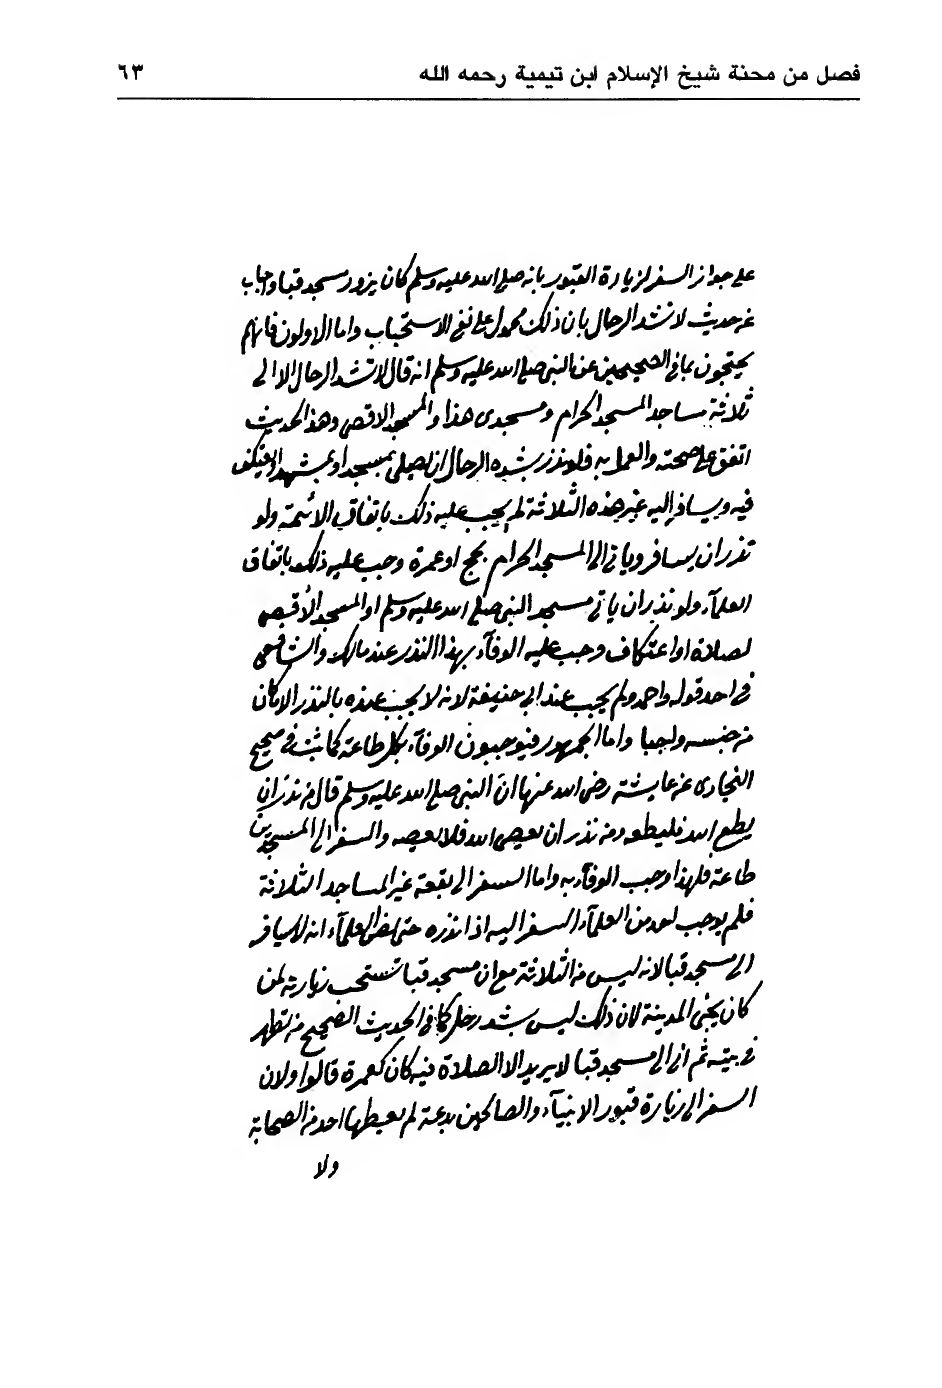 فصل من محنة شيخ الإسلام ابن تيمية رحمه الله ٦٣
على جواز السفر لزيارة القبور بانه صلى الله عليه وسلم كان يزور مسجد قبا واجاب
عن حديث لا تشد الرحال بان ذلك محمول على نفي الاستحباب واما الاولون فانهم
يحتجون بما في الصحيحين عن النبي صلى الله عليه وسلم انه قال لا تشد الرحال الا الى
ثلاثة مساجد المسجد الحرام ومسجدي هذا والمسجد الاقصى وهذا الحديث
اتفق على صحته والعمل به فلو نذر بشده الرحال ان يصلي بمسجد او بمشهد او يعتكف
فيه ويسافر إليه غير هذه الثلاثة لم يجب عليه ذلك باتفاق الائمة ولو
نذر ان يسافر وياتي الى المسجد الحرام بحج او عمرة وجب عليه ذلك باتفاق
العلمآء ولو نذر ان ياتي مسجد النبي صلى الله عليه وسلم او المسجد الأقصى
لصلاة او اعتكاف وجب عليه الوفآء بهذا النذر عند مالك والشافعي
في احد قوليه واحمد ولم يجب عند ابي حنيفة لانه لا يجب عنده بالنذر الا ما كان
من جنسه واجبا واما الجمهور فيوجبون الوفآء بكل طاعة كما ثبت في صحيح
البخاري عن عايشة رضي الله عنها ان النبي صلى الله عليه وسلم قال من نذر ان
يطع الله فليطعه ومن نذر ان يعصي الله فلا يعصه والسفر الى المسجدين
طاعة فلهذا وجب الوفآء به واما السفر الى بقعة غير المساجد الثلاثة
فلم يوجب احد من العلمآء السفر اليه اذا نذره حتى نص العلمآء انه لا يسافر
الى مسجد قبا لانه ليس من الثلاثة مع ان مسجد قبا تستحب زيارته لمن
كان بجنى المدينة لان ذلك ليس بشد رحل كما في الحديث الصحيح من تطهر
في بيته ثم اتى الى مسجد قبا لا يريد الا الصلاة فيه كان كعمرة قالوا ولان
السفر الى زيارة قبور الانبيآء والصالحين بدعة لم يفعلها احد من الصحابة
ولا